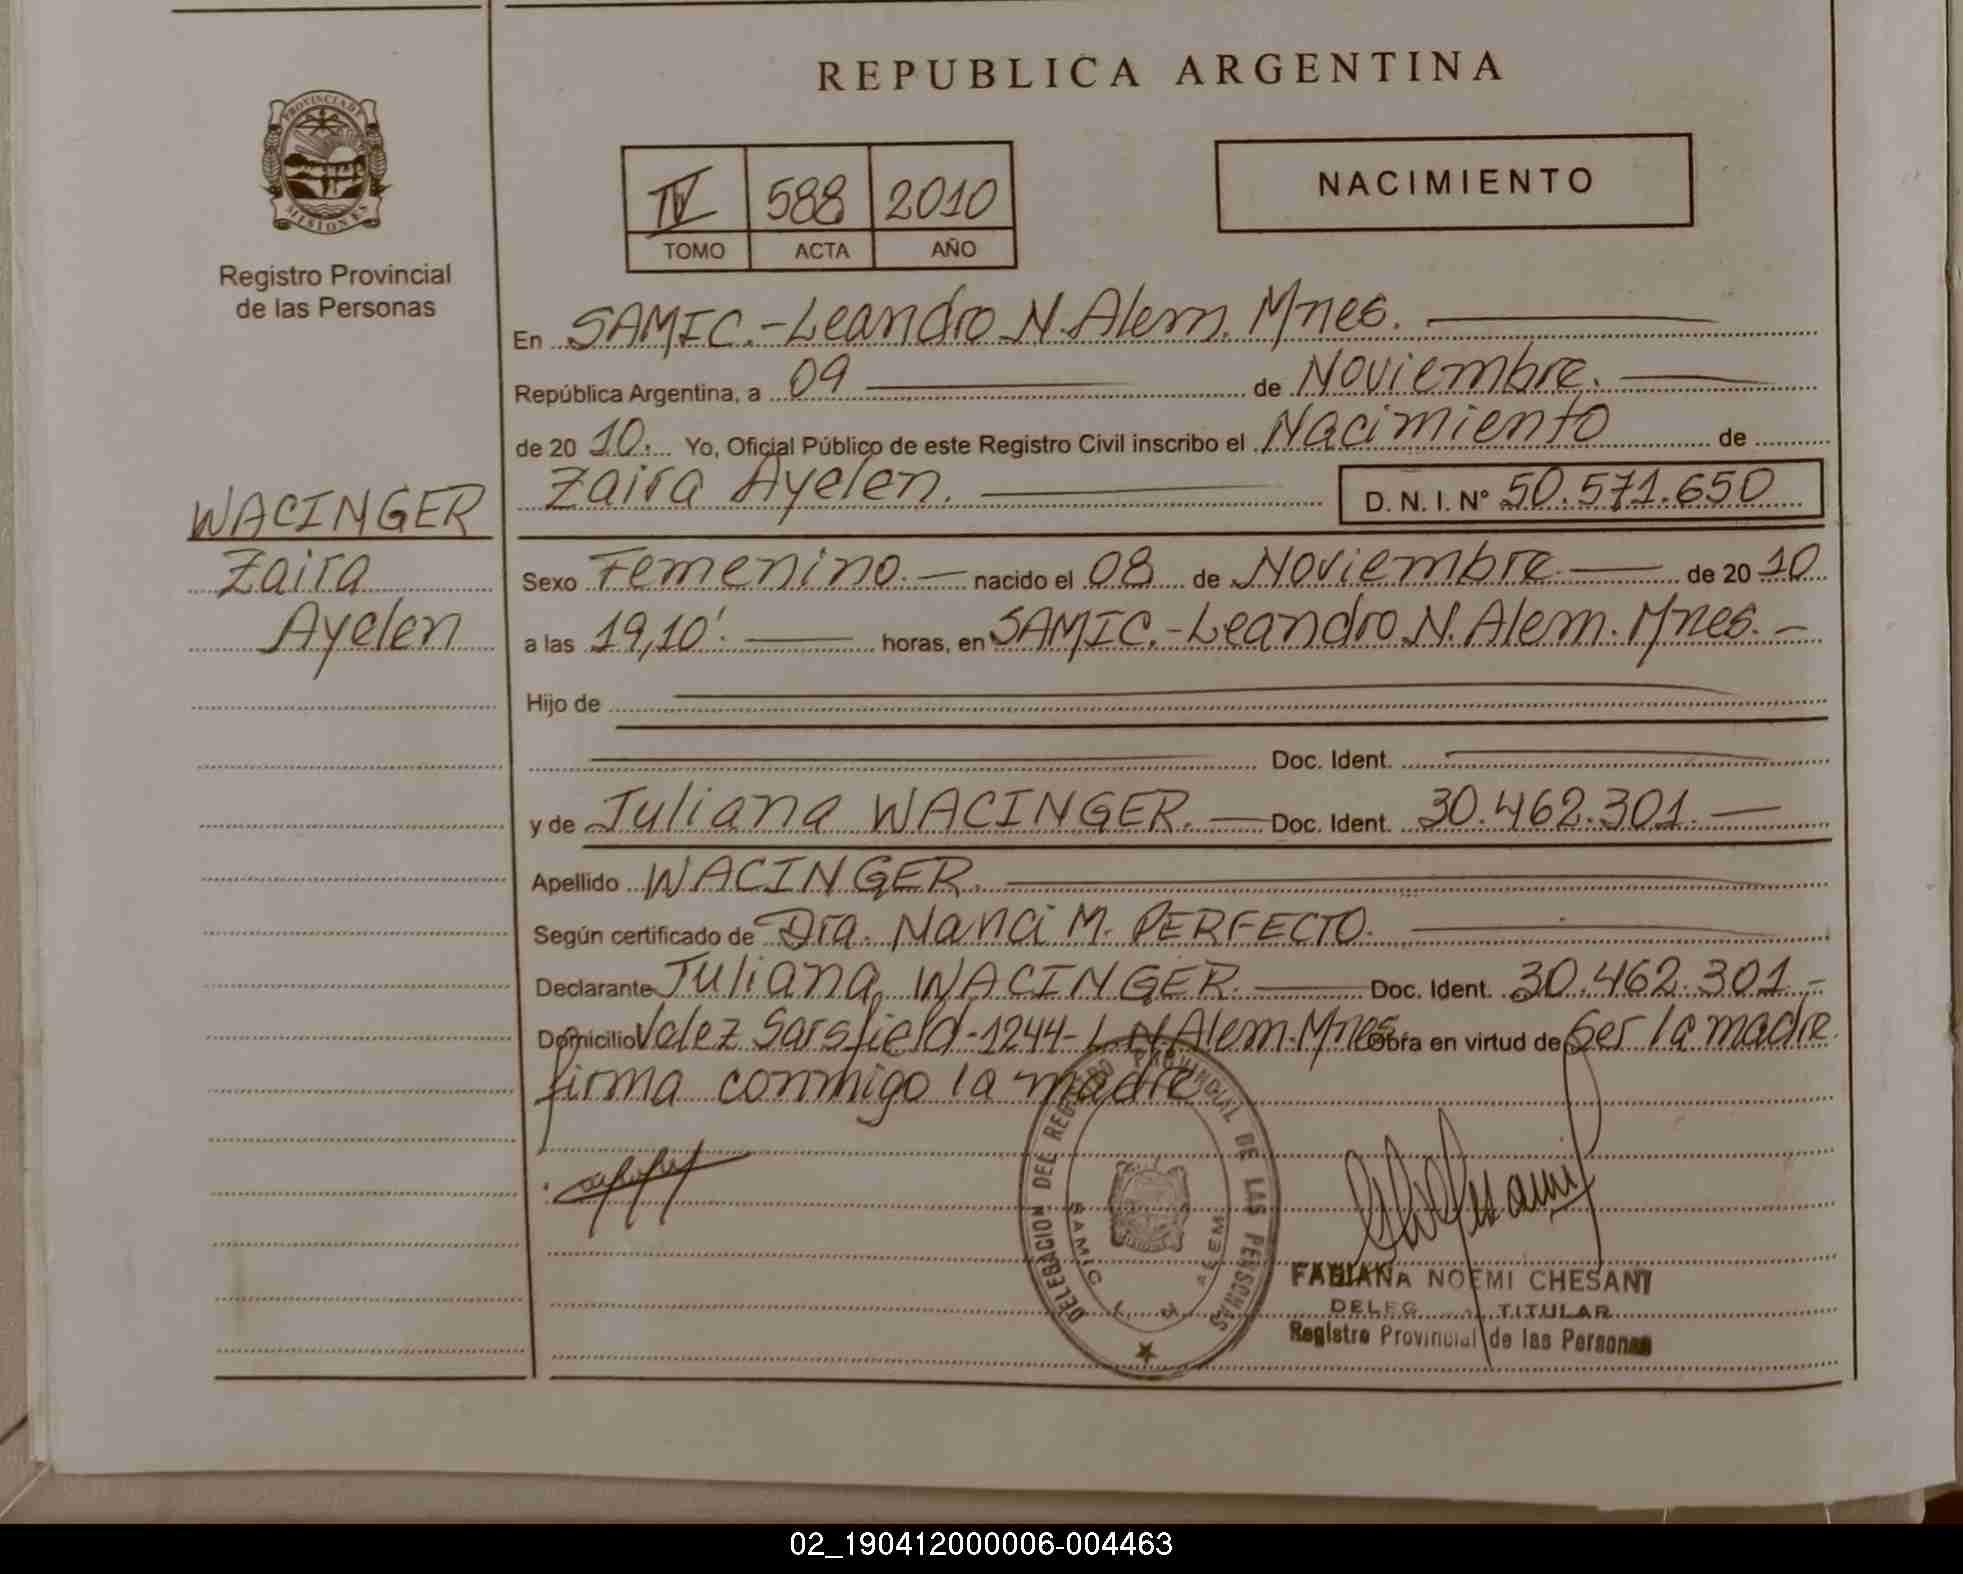 REPUBLICA ARGENTINA
PROVINCIA DE
MISIONES
Registro Provincial
de las Personas
IV 588 2010
TOMO ACTA AÑO
NACIMIENTO
En SAMIC.-Leandro N. Alem. Mnes.
República Argentina, a 09 de Noviembre.
de 2010. Yo, Oficial Público de este Registro Civil inscribo el Nacimiento de
Zaira Ayelen. D. N. I. N° 50.571.650
WACINGER
Zaira
Ayelen
Sexo Femenino.- nacido el 08 de Noviembre de 2010
a las 19,10'. horas, en SAMIC.-Leandro N. Alem. Mnes.-
Hijo de
Doc. Ident.
y de Juliana WACINGER. Doc. Ident. 30.462.301.
Apellido WACINGER.
Según certificado de Dra. Nanci M. PERFECTO.
Declarante Juliana WACINGER. Doc. Ident. 30.462.301.-
Domicilio Velez Sarsfield-1244-L.N.Alem.Mnes. Obra en virtud de Ser la madre.
firma conmigo la madre
DELEGACION DEL REGISTRO PROVINCIAL DE LAS PERSONAS
SAMIC ALEM
FABIANA NOEMI CHESANI
DELEG TITULAR
Registro Provincial de las Personas
02_190412000006-004463